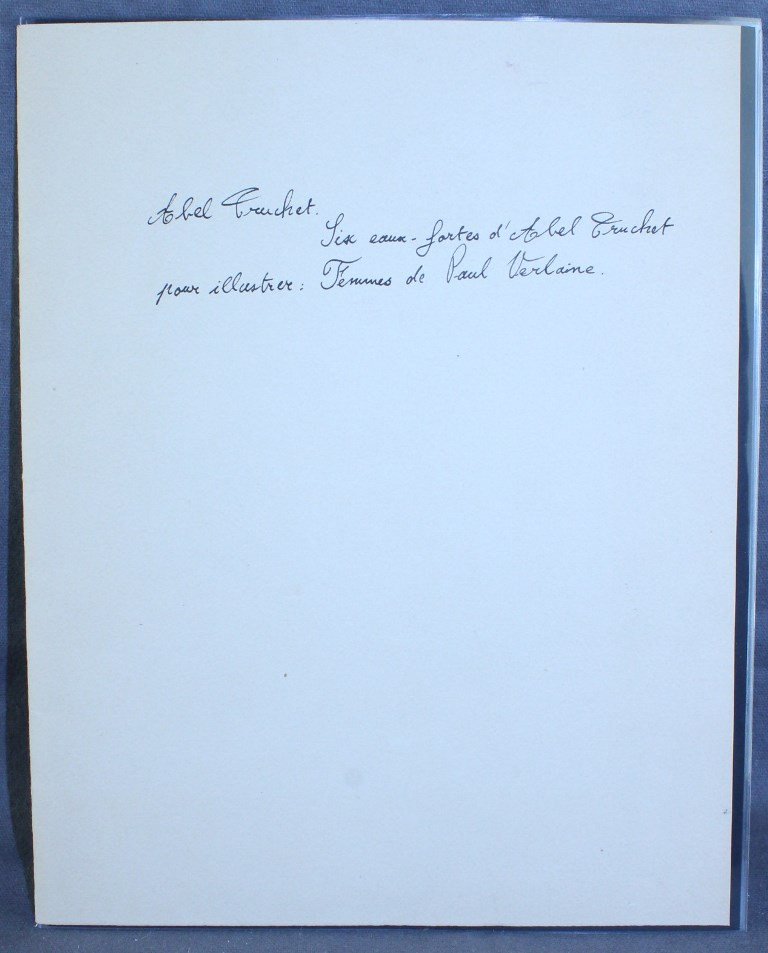 Abel Truchet.
Six eaux-fortes d'Abel Truchet
pour illustrer : Femmes de Paul Verlaine.